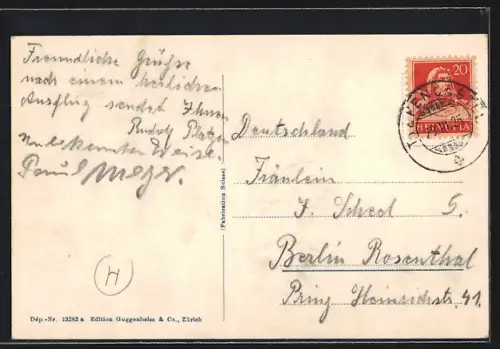 Freundliche Grüße
nach einem herlichen
Ausflug sendet Ihnen
Rudolf
unbekannter Weise.
Paul Meyer.
Deutschland
Fräulein
F. Scheel
Berlin Rosenthal
Prinz Heinrichstr. 41.
(Fabrication Suisse)
20
HELVETIA
H
Dép.-Nr. 13282 a Edition Guggenheim & Co., Zürich